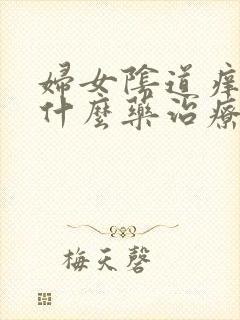 婦女陰道痒
什麼藥治療
梅天磬